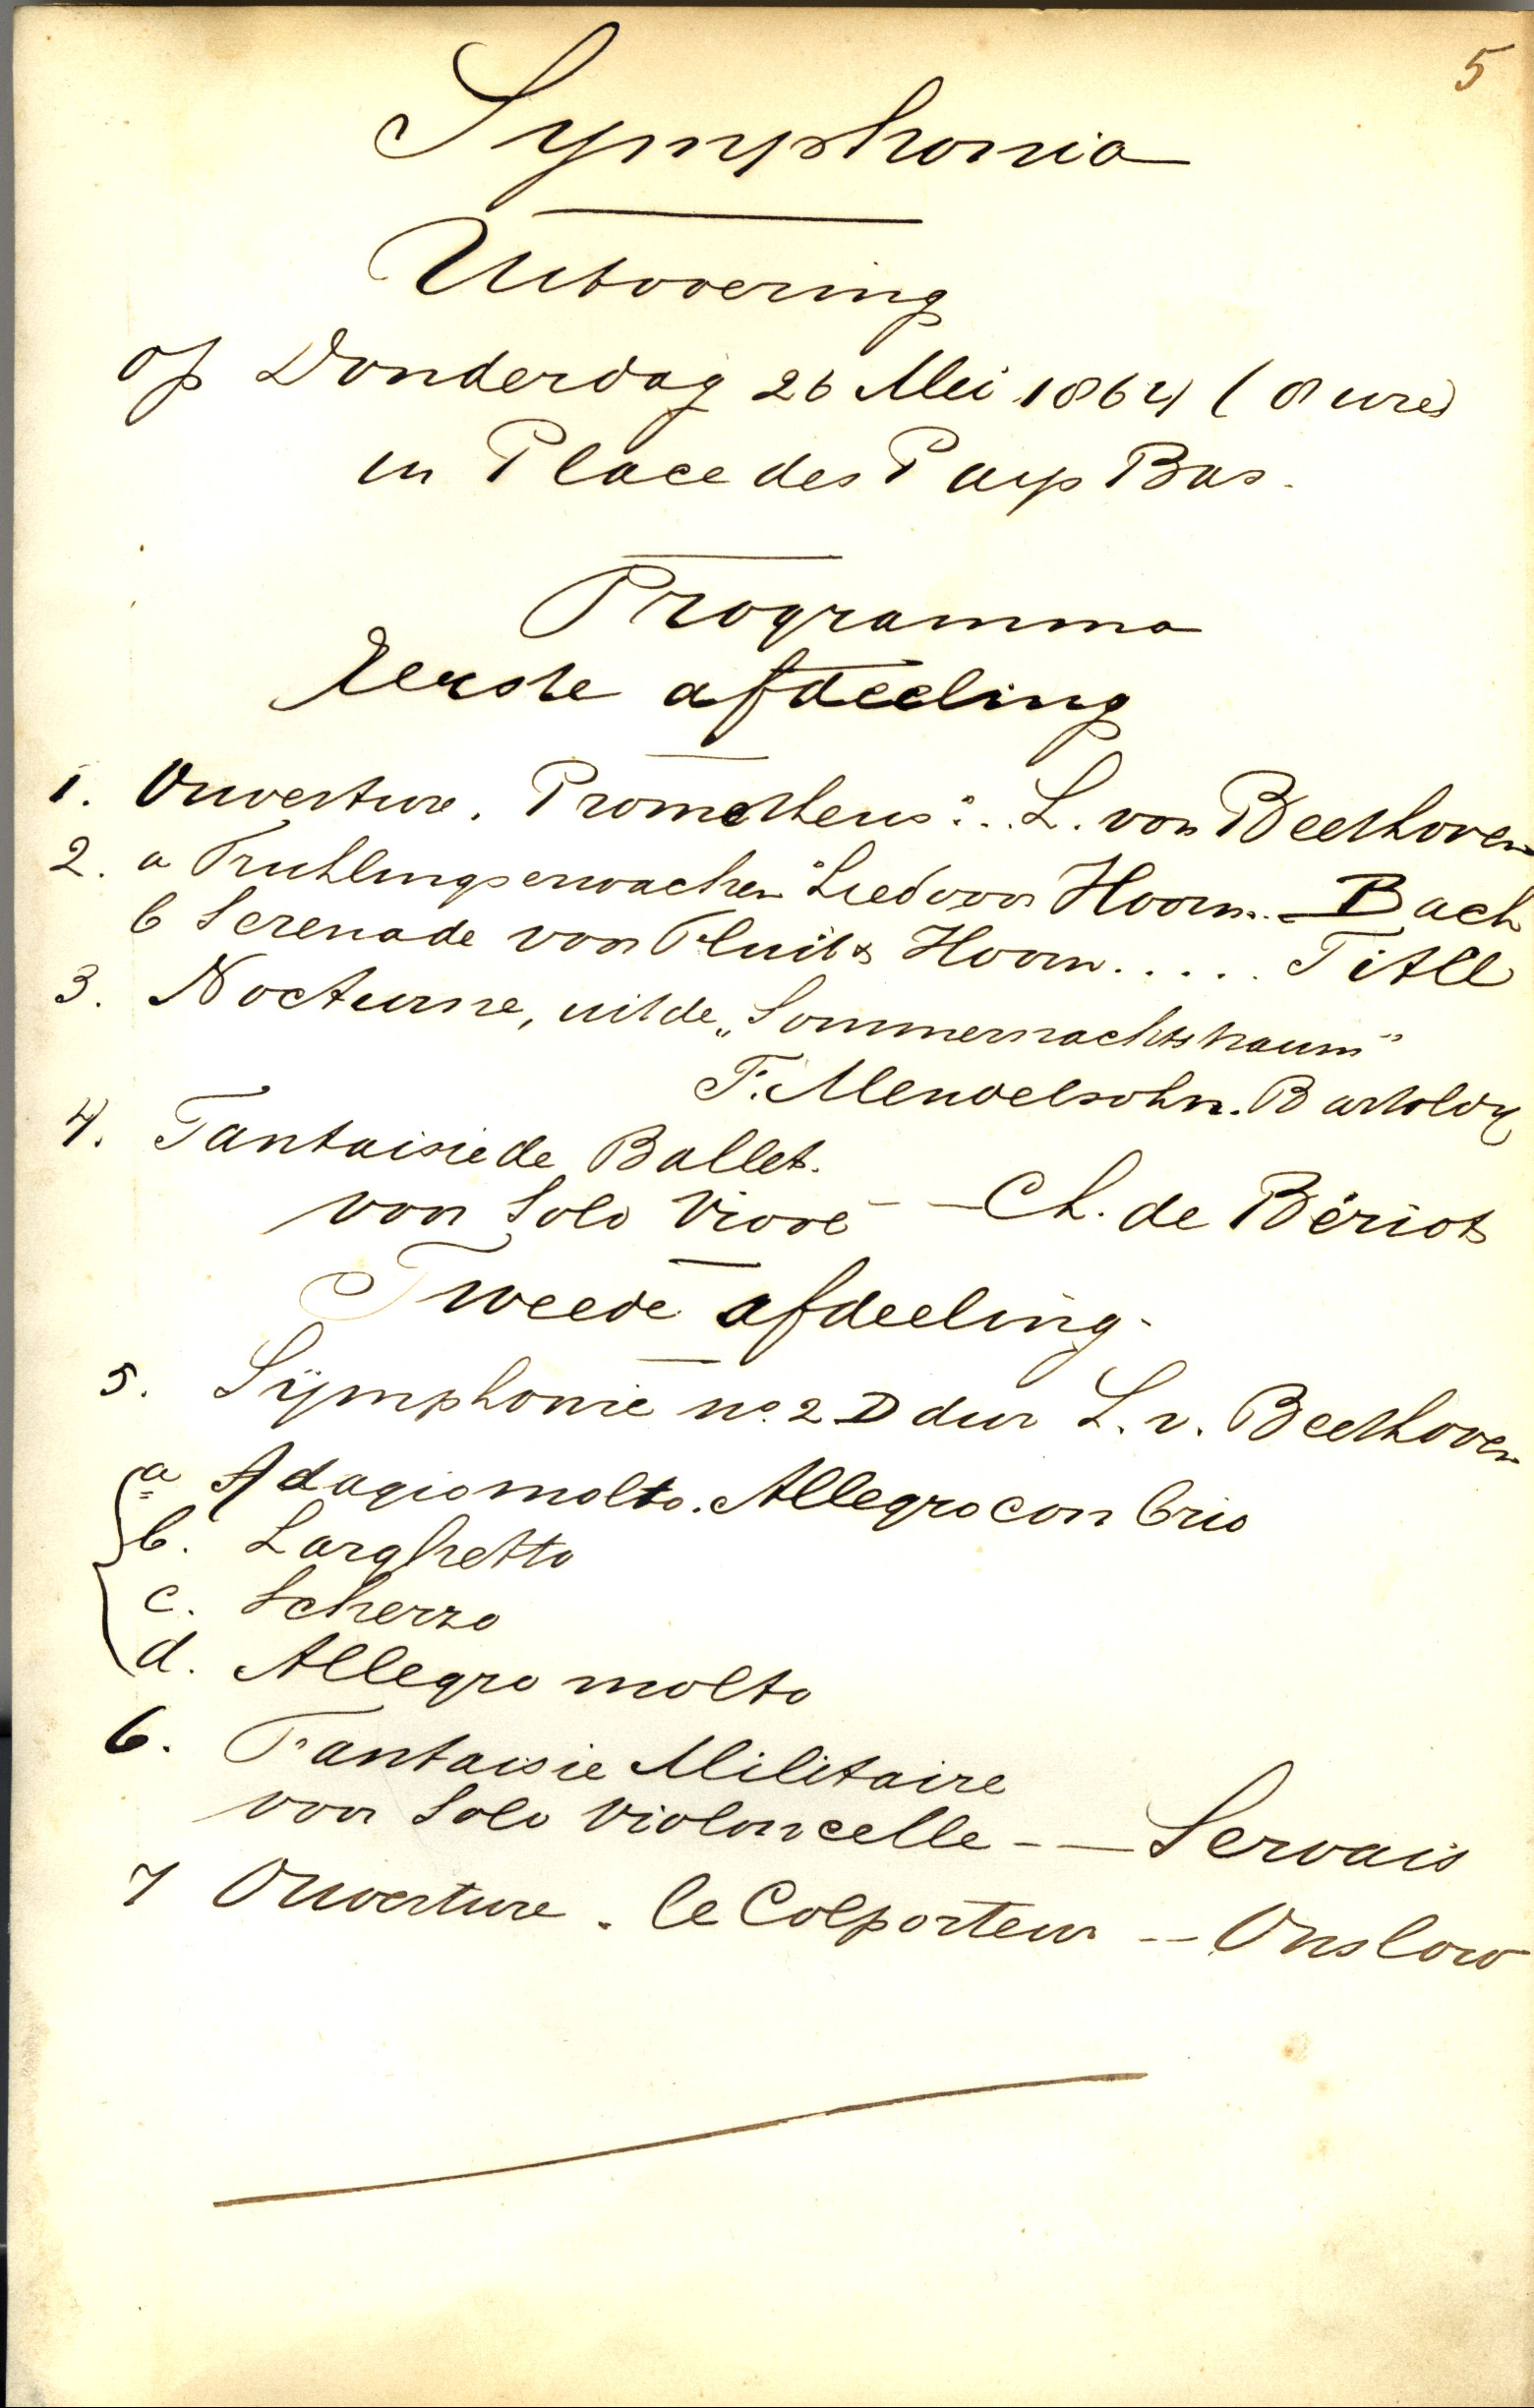 5
Symphonia
Uitvoering
op Donderdag 26 Mei 1864 (8 ure)
in Place des Pays Bas.
Programma
Eerste afdeeling
1. Ouverture. Prometheus". . L. von Beethoven
2. a Fruhlingserwachen "Lied voor Hoorn. . Bach
b Serenade voor Fluit & Hoorn. . . . . Titll
3. Nocturne, uit de „Sommernachtstraum"
F. Mendelsohn. Bartoldy
4. Fantaisie de Ballet.
voor Solo Viool - - Ch. de Bériot
Tweede afdeeling.
5. Sÿmphonie no. 2 D dur L. v. Beethoven
a Adagio molto. Allegro con brio
b. Larghetto
c. Scherzo
d. Allegro molto
6. Fantaisie Militaire
voor Solo Violoncelle - - Servais
7 Ouverture. le Colporteur - - Onslow